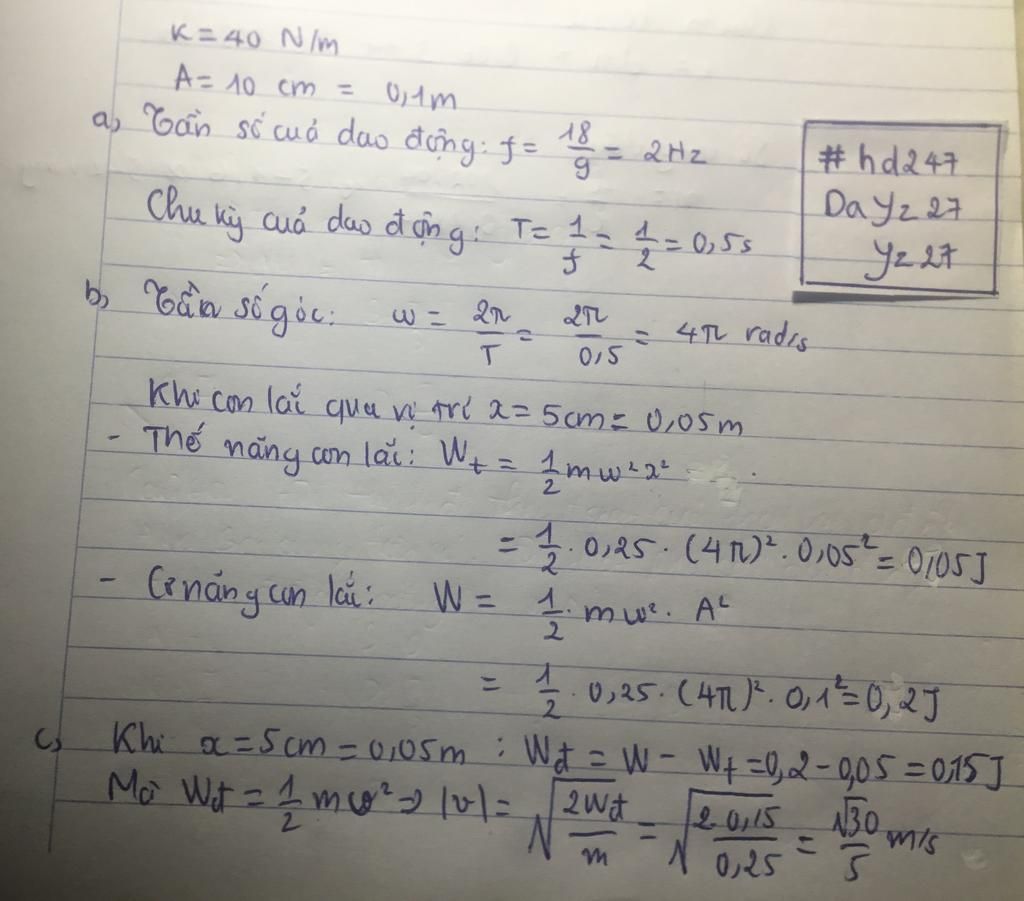 K = 40 N/m
A = 10 cm = 0,1m
a, Tần số của dao động: f = 18/9 = 2Hz
Chu kỳ của dao động: T = 1/f = 1/2 = 0,5s
#hd247
DaYz27
Yz27
b, Tần số góc: ω = 2π/T = 2π/0,5 = 4π rad/s
Khi con lắc qua vị trí x = 5cm = 0,05m
- Thế năng con lắc: Wt = 1/2 mω²x²
= 1/2 · 0,25 · (4π)² · 0,05² = 0,05J
- Cơ năng con lắc: W = 1/2 · mω² · A²
= 1/2 · 0,25 · (4π)² · 0,1² = 0,2J
c, Khi x = 5cm = 0,05m : Wđ = W - Wt = 0,2 - 0,05 = 0,15J
Mà Wđ = 1/2 mv² => |v| = √(2Wđ/m) = √(2.0,15/0,25) = √30/5 m/s